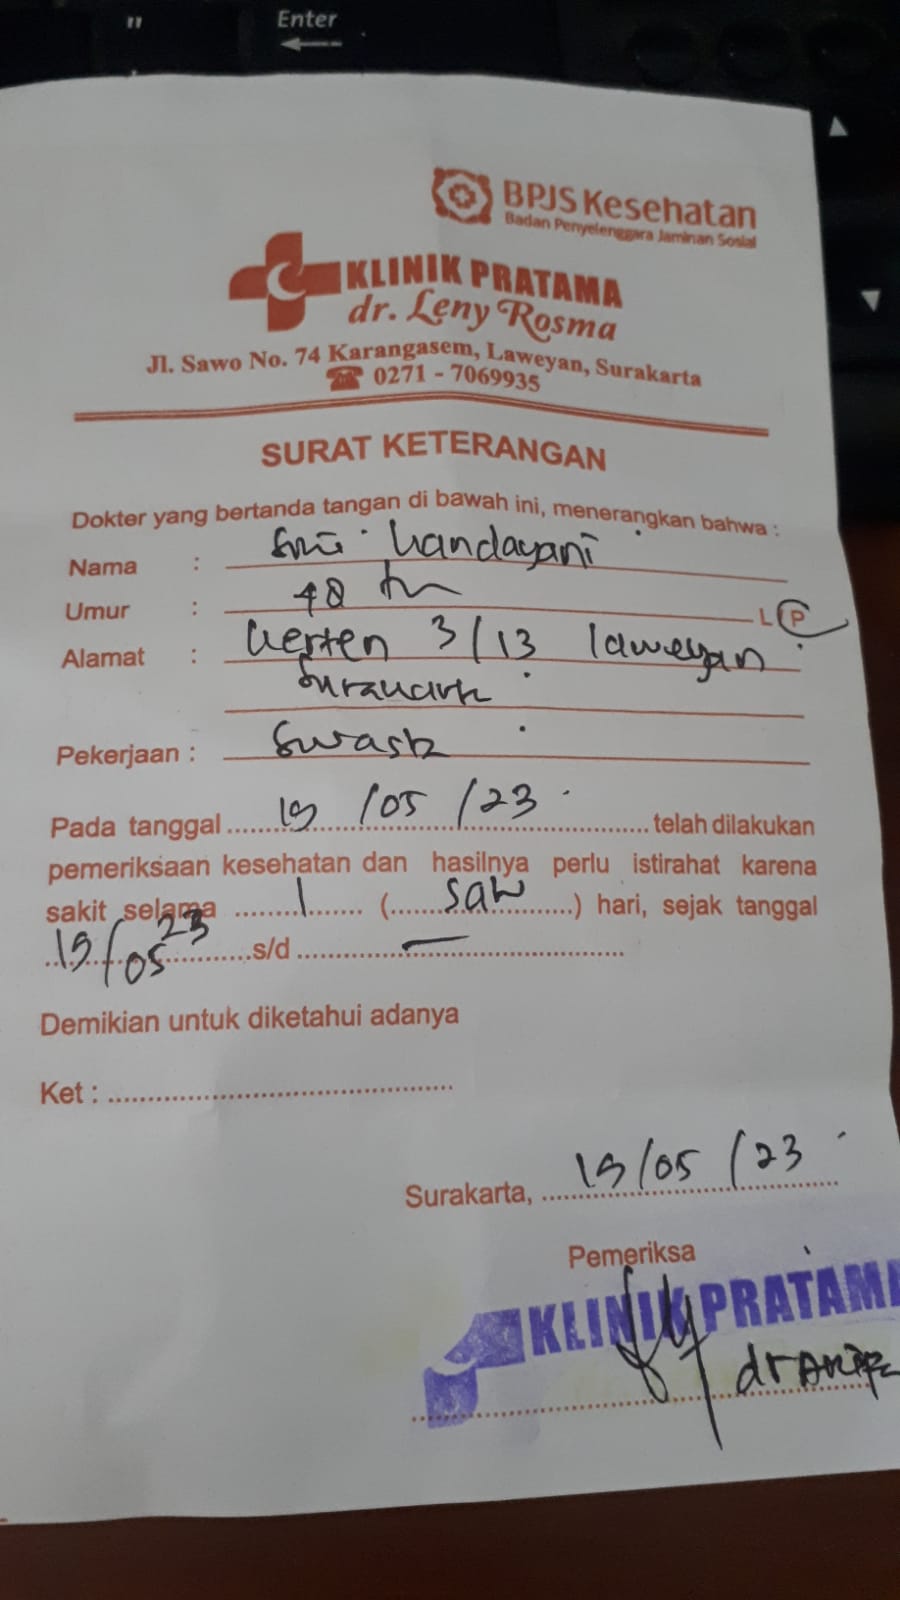 "
Enter
BPJS Kesehatan
Badan Penyelenggara Jaminan Sosial
KLINIK PRATAMA
dr. Leny Rosma
Jl. Sawo No. 74 Karangasem, Laweyan, Surakarta
☎ 0271 - 7069935
SURAT KETERANGAN
Dokter yang bertanda tangan di bawah ini, menerangkan bahwa :
Nama : Sri Handayani
Umur : 48 th L P
Alamat : Kerten 3/13 Laweyan
Surakarta
Pekerjaan : Swasta
Pada tanggal 19/05/23 telah dilakukan
pemeriksaan kesehatan dan hasilnya perlu istirahat karena
sakit selama 1 (satu) hari, sejak tanggal
19/05 23 s/d –
Demikian untuk diketahui adanya
Ket :
Surakarta, 19/05/23
Pemeriksa
KLINIK PRATAMA
dr